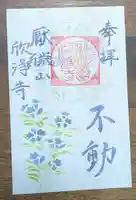 奉拝
不動
厭離山
欣浄寺